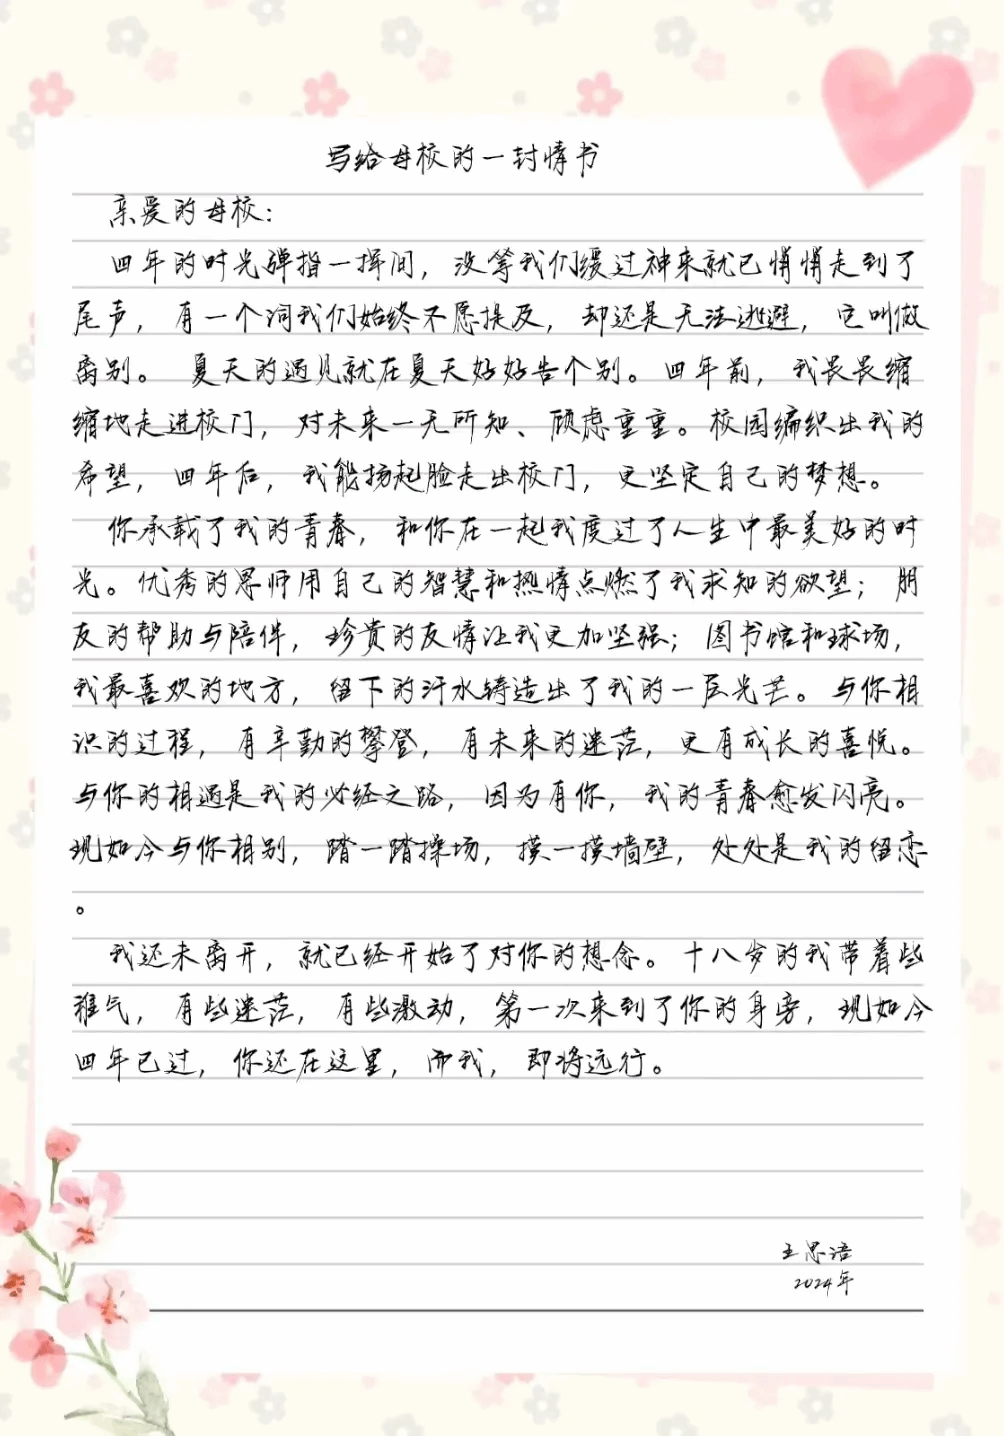 写给母校的一封情书
亲爱的母校：
四年的时光弹指一挥间，没等我们缓过神来就已悄悄走到了
尾声，有一个词我们始终不愿提及，却还是无法逃避，它叫做
离别。 夏天的遇见就在夏天好好告个别。四年前，我畏畏缩
缩地走进校门，对未来一无所知、顾虑重重。校园编织出我的
希望，四年后，我能扬起脸走出校门，更坚定自己的梦想。
你承载了我的青春，和你在一起我度过了人生中最美好的时
光。优秀的恩师用自己的智慧和热情点燃了我求知的欲望；朋
友的帮助与陪伴，珍贵的友情让我更加坚强；图书馆和球场，
我最喜欢的地方，留下的汗水铸造出了我的一层光芒。与你相
识的过程，有辛勤的攀登，有未来的迷茫，更有成长的喜悦。
与你的相遇是我的必经之路，因为有你，我的青春愈发闪亮。
现如今与你相别，踏一踏操场，摸一摸墙壁，处处是我的留恋
。
我还未离开，就已经开始了对你的想念。十八岁的我带着些
稚气，有些迷茫，有些激动，第一次来到了你的身旁，现如今
四年已过，你还在这里，而我，即将远行。
王思语
2024年